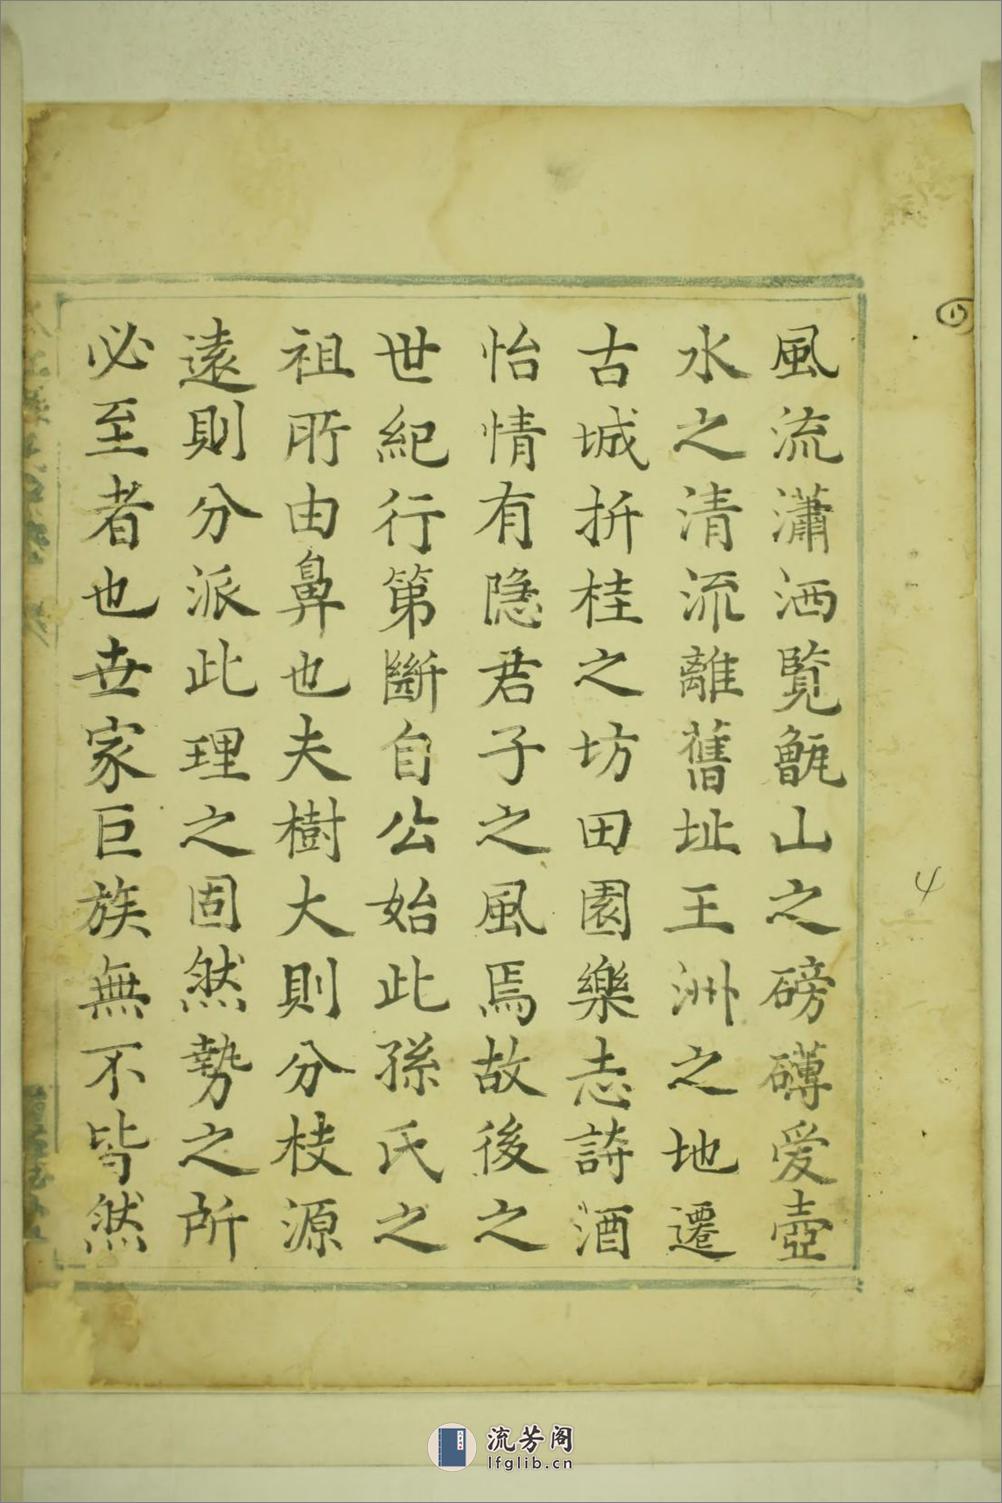 風流瀟洒覧甑山之磅礴爱壺
水之清流離舊址王洲之地遷
古城拚桂之坊田園樂志詩酒
怡情有隐君子之風焉故後之
世紀行第斷自公始此孫氏之
祖所由鼻也夫樹大則分枝源
遠則分派此理之固然勢之所
必至者也世家巨族無不皆然
4
流芳阁
lfglib.cn